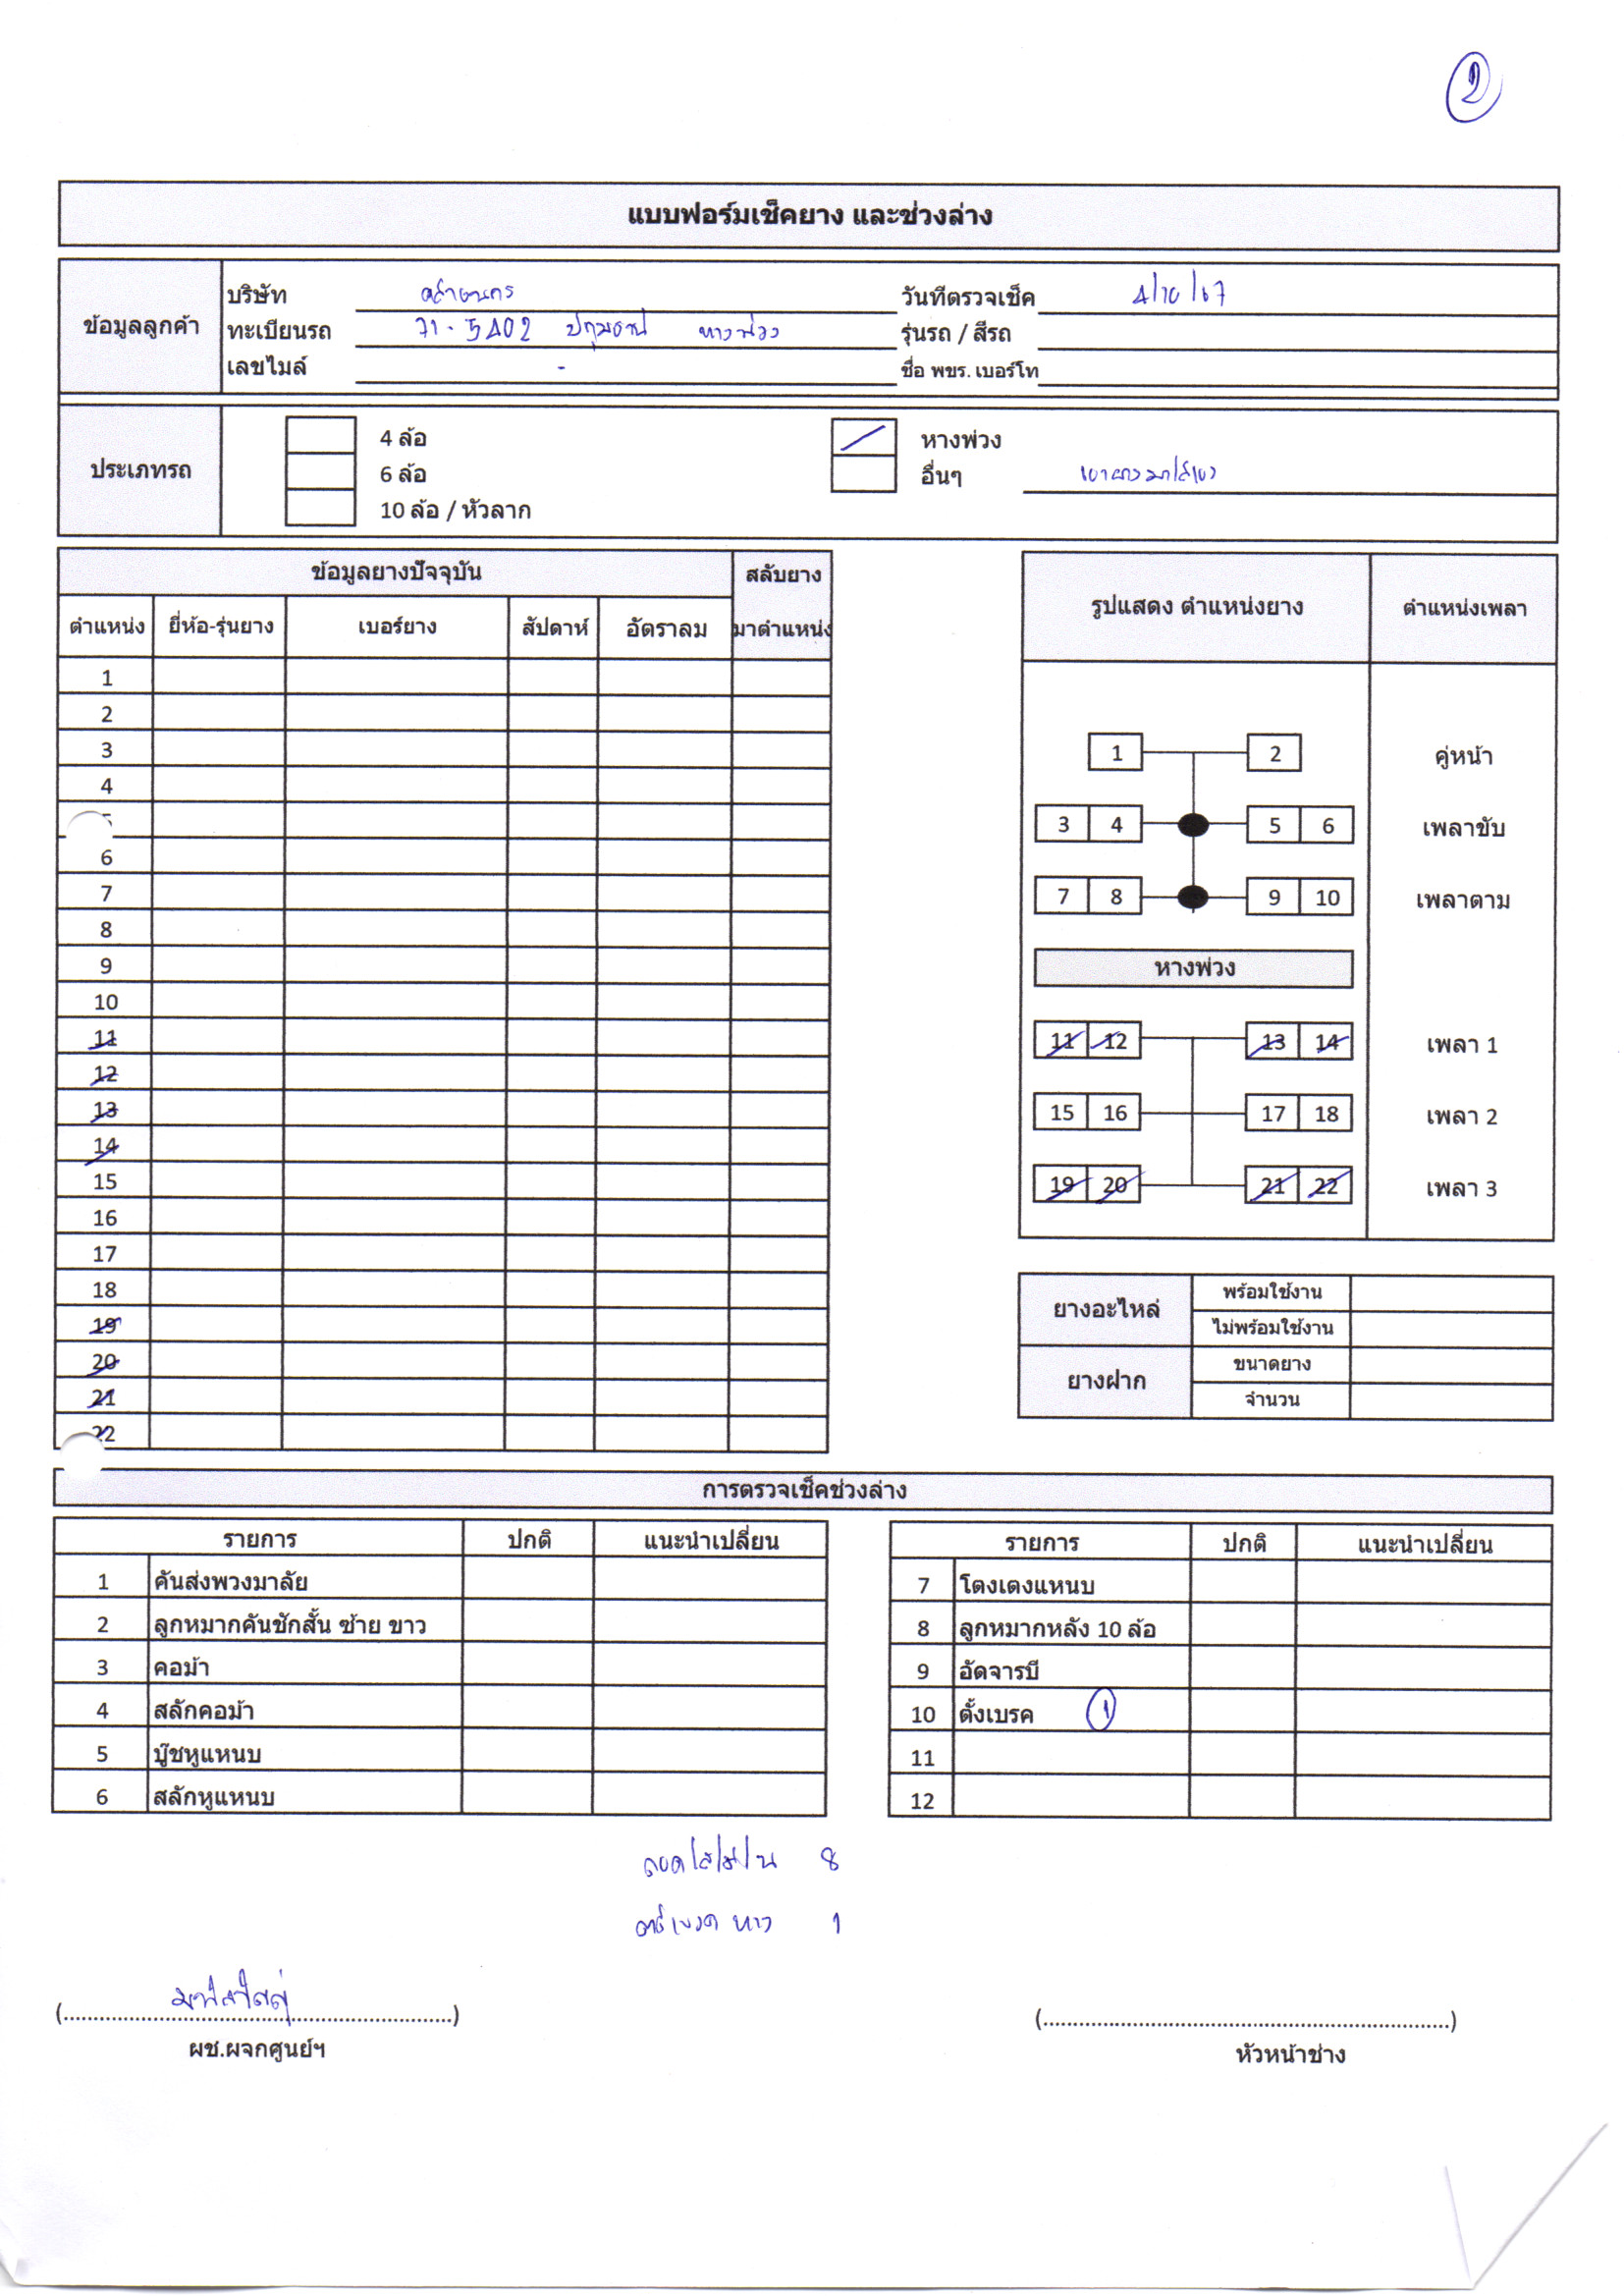 2
แบบฟอร์มเช็คยาง และช่วงล่าง
ข้อมูลลูกค้า
บริษัท
วันที่ตรวจเช็ค 4/10/67
ทะเบียนรถ 71-5402 ปทุมธานี หางพ่วง
รุ่นรถ / สีรถ
เลขไมล์ -
ชื่อ พขร. เบอร์โท
ประเภทรถ
4 ล้อ
6 ล้อ
10 ล้อ / หัวลาก
หางพ่วง
อื่นๆ
ข้อมูลยางปัจจุบัน สลับยาง
ตำแหน่ง ยี่ห้อ-รุ่นยาง เบอร์ยาง สัปดาห์ อัตราลม มาตำแหน่ง
1
2
3
4
6
7
8
9
10
11
12
13
14
15
16
17
18
19
20
21
22
รูปแสดง ตำแหน่งยาง ตำแหน่งเพลา
1 2 คู่หน้า
3 4 5 6 เพลาขับ
7 8 9 10 เพลาตาม
หางพ่วง
11 12 13 14 เพลา 1
15 16 17 18 เพลา 2
19 20 21 22 เพลา 3
ยางอะไหล่ พร้อมใช้งาน
ไม่พร้อมใช้งาน
ยางฝาก ขนาดยาง
จำนวน
การตรวจเช็คช่วงล่าง
รายการ ปกติ แนะนำเปลี่ยน
1 คันส่งพวงมาลัย
2 ลูกหมากคันชักสั้น ซ้าย ขาว
3 คอม้า
4 สลักคอม้า
5 บู๊ชหูแหนบ
6 สลักหูแหนบ
รายการ ปกติ แนะนำเปลี่ยน
7 โตงเตงแหนบ
8 ลูกหมากหลัง 10 ล้อ
9 อัดจารบี
10 ตั้งเบรค 1
11
12
8
ตั้งเบรค หาง 1
(..........)
ผช.ผจกศูนย์ฯ
(..........)
หัวหน้าช่าง